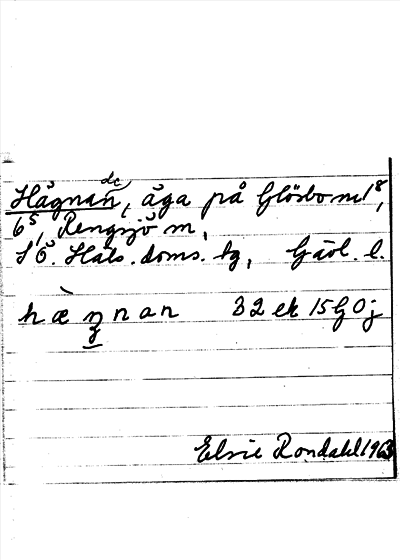 Hågnan, de äga på Glösbo m 1⁸,
6⁵, Rengsjö m,
S Ö. Häls. doms. tg, Gävl. l.
hæ̀ŋnan 32 ek 15G0j
Elsie Rondahl 1963